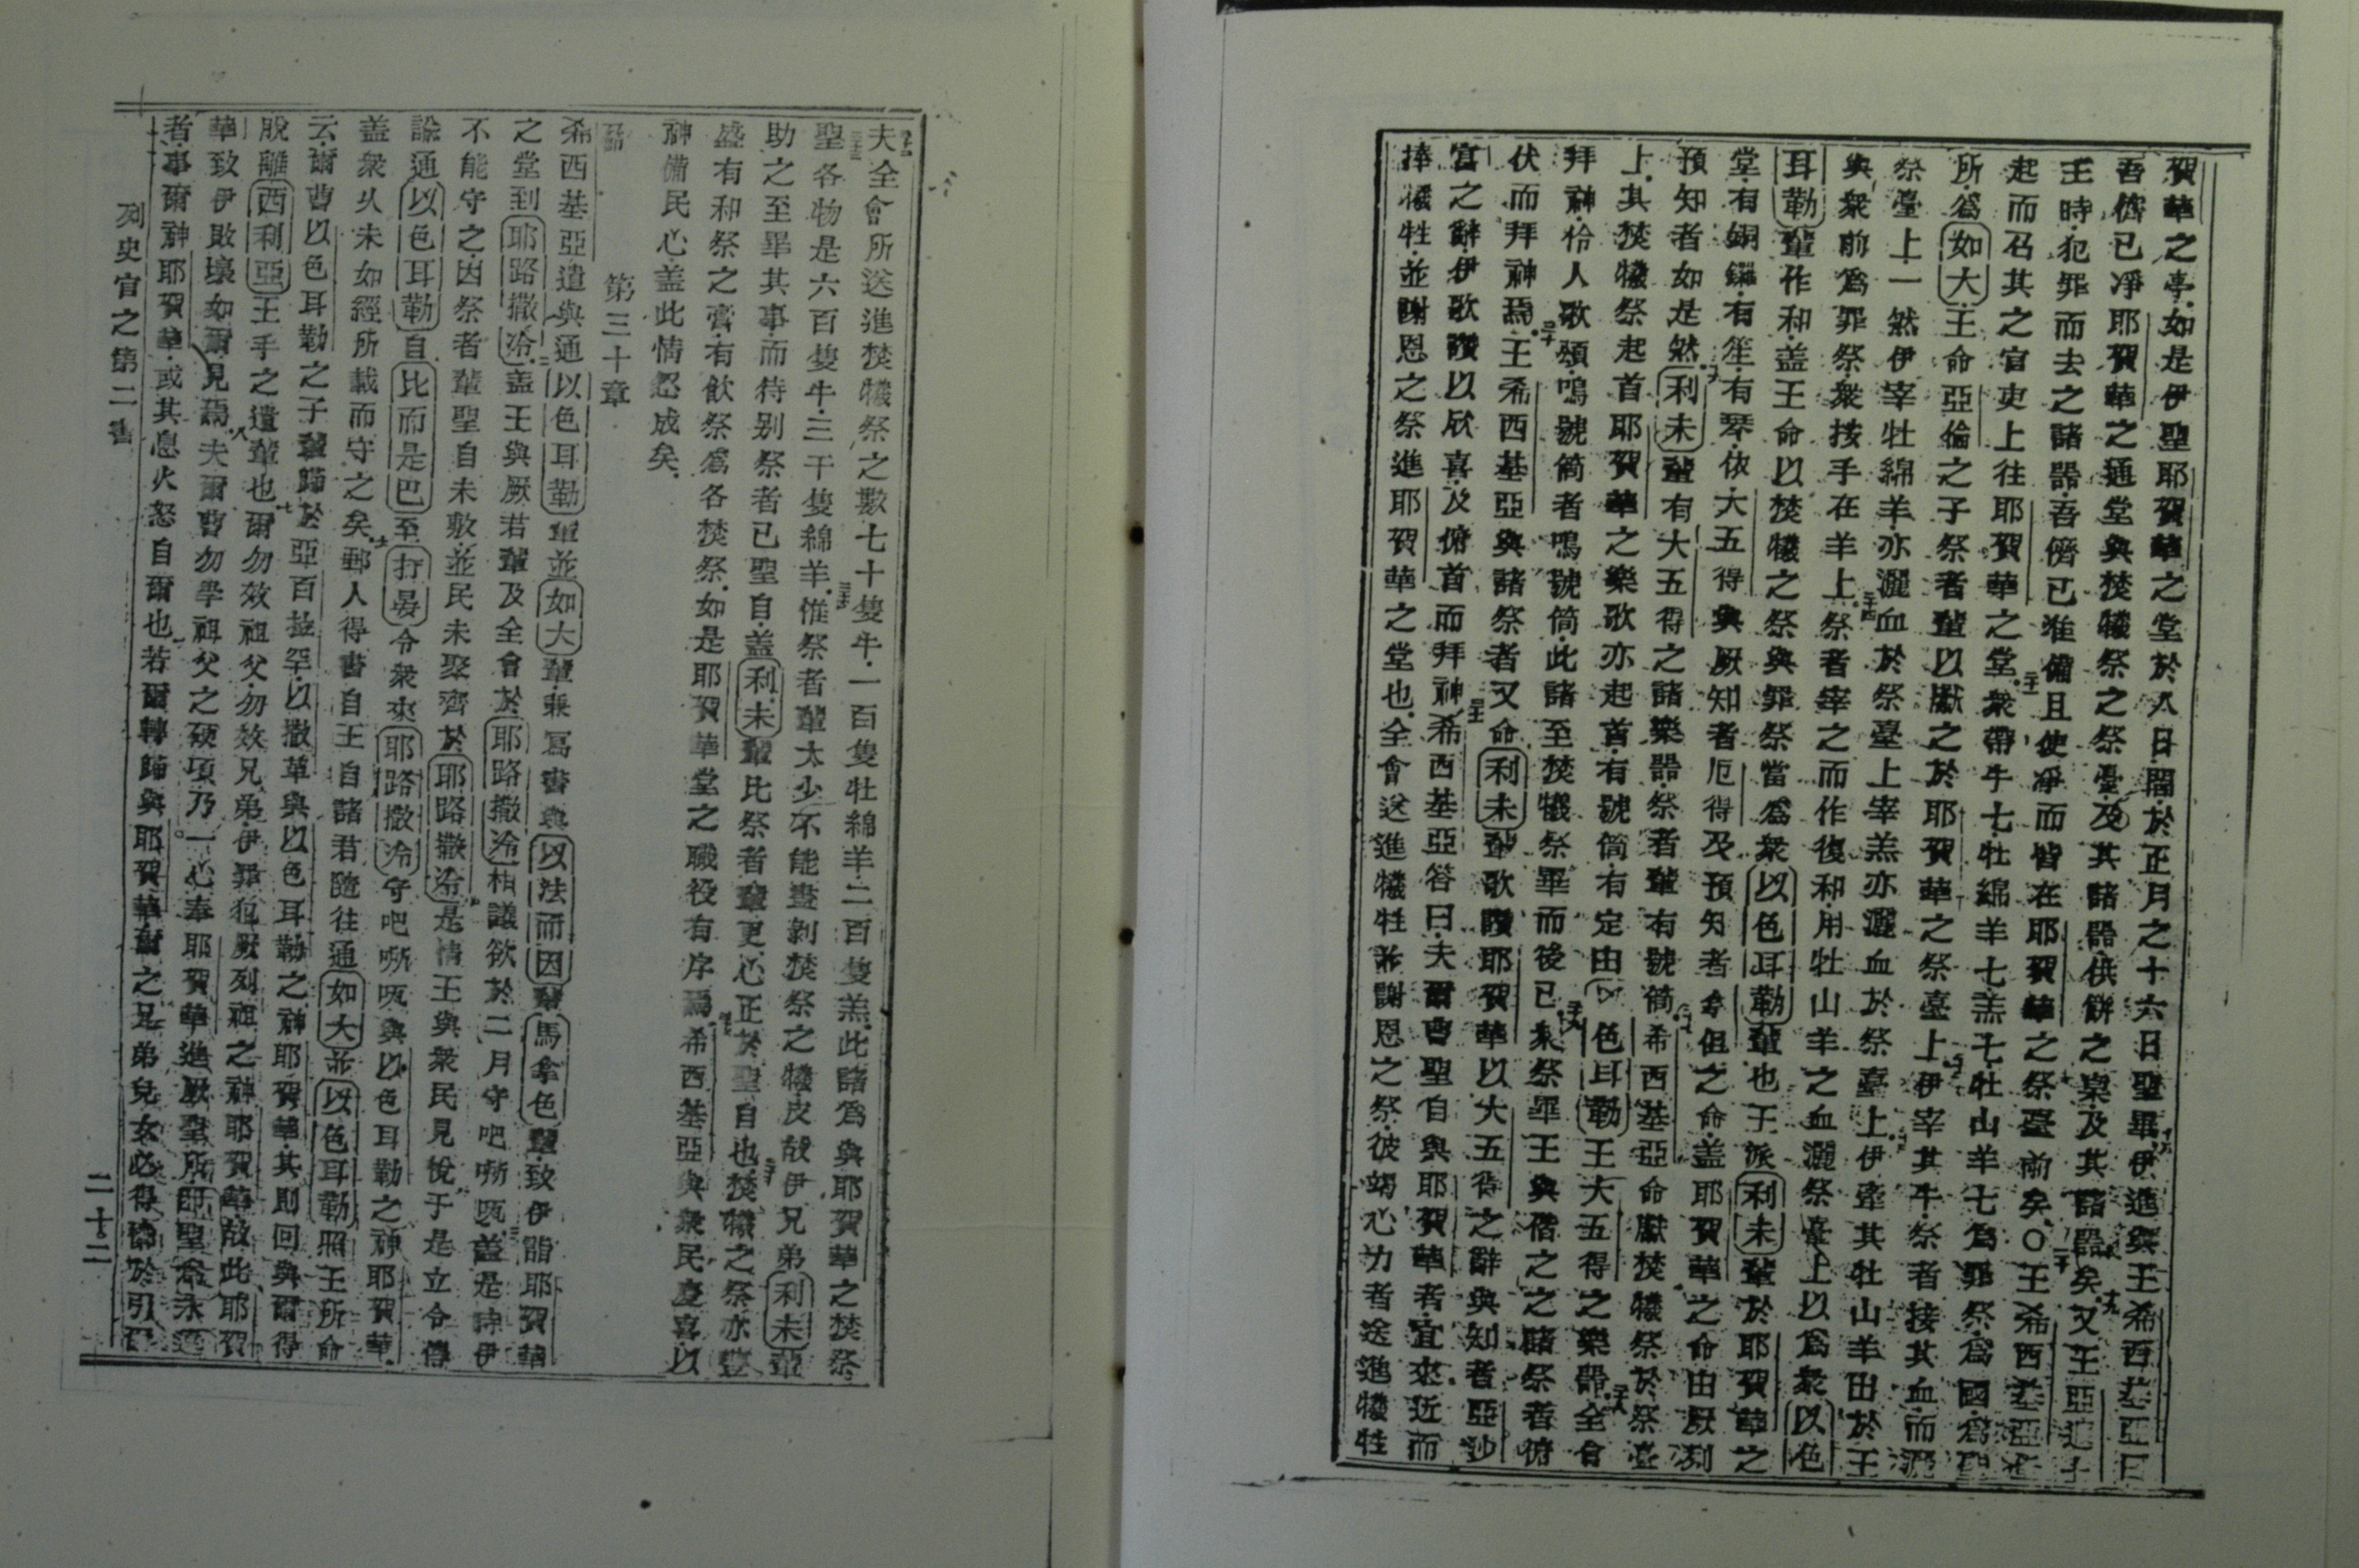 賀華之亭如是伊聖耶賀華之堂於八日間於正月之十六日聖畢伊進與王希西基亞曰
吾儕已凈耶賀華之通堂與焚犧祭之祭臺及其諸器供餅之桌及其諸器矣又王亞
王時犯罪而去之諸器吾儕已准備且使凈而皆在耶賀華之祭臺前矣〇王希西基亞
起而召其之官吏上往耶賀華之堂衆帶牛七牡綿羊七羔七牡山羊七為罪祭為國為聖
所為如大王命亞倫之子祭者輩以獻之於耶賀華之祭臺上伊宰其牛祭者接其血而洒
祭臺上一然伊宰牡綿羊亦灑血於祭臺上宰羔亦灑血於祭臺上伊牽其牡山羊出於王
與衆前為罪祭衆按手在羊上祭者宰之而作復和用牡山羊之血灑祭臺上以為衆以色
耳勒輩作和蓋王命以焚犧之祭與罪祭當為衆以色耳勒輩也王派利未輩於耶賀華之
堂有銅鑼有笙有琴依大五得與厥知者厄得及預知者拿但之命蓋耶賀華之命由厥列
預知者如是然利未輩有大五得之諸樂器祭者輩有號筒希西基亞命獻焚犧祭於祭臺
上其焚犧祭起首耶賀華之樂歌亦起首有號筒有定由以色耳勒王大五得之樂器全會
拜神伶人歌頌鳴號筒者鳴號筒此諸至焚犧祭畢而後已衆祭畢王與偕之之諸祭者俯
伏而拜神焉王希西基亞與諸祭者又命利未輩歌讚耶賀華以大五得之辭與知者亞沙
官之辭伊歌讚以欣喜及俯首而拜神希西基亞答曰夫爾曹聖自與耶賀華者宜來近而
捧犧牲並謝恩之祭進耶賀華之堂也全會送進犧牲並謝恩之祭彼竭心力者送進犧牲
夫全會所送進焚犧祭之數七十隻牛一百隻牡綿羊二百隻羔此諸為與耶賀華之焚祭
聖各物是六百隻牛三千隻綿羊惟祭者輩太少不能盡剝焚祭之犧皮故伊兄弟利未輩
助之至畢其事而待別祭者已聖自蓋利未輩比祭者輩更心正於聖自也焚犧之祭亦豐
盛有和祭之膏有飲祭為各焚祭如是耶賀華堂之職役有序焉希西基亞與衆民慶喜以
神備民心蓋此情忽成矣
第三十章
希西基亞遣與通以色耳勒輩並如大輩兼寫書與以法而因輩馬拿色輩致伊詣耶賀華
之堂到耶路撒冷蓋王與厥若輩及全會於耶路撒冷相議欲於二月守吧㘄㕽蓋是時伊
不能守之因祭者輩聖自未敷並民未聚齊於耶路撒冷是情王與衆民見悅于是立令傳
諭通以色耳勒自比而是巴至打晏令衆來耶路撒冷守吧㘄㕽與以色耳勒之神耶賀華
蓋衆久未如經所載而守之矣郵人得書自王自諸君隨往通如大並以色耳勒照王所命
云爾曹以色耳勒之子輩歸於亞百拉罕以撒革與以色耳勒之神耶賀華其則回與爾得
脫離西利亞王手之遺輩也爾勿效祖父勿效兄弟伊罪犯厥列祖之神耶賀華故此耶賀
華致伊敗壞如爾見焉夫爾曹勿學祖父之硬項乃一心奉耶賀華進厥聖所
者事爾神耶賀華或其息火怒自爾也若爾轉歸與耶賀華爾之兄弟兒女必得
列史官之第二書
二十二